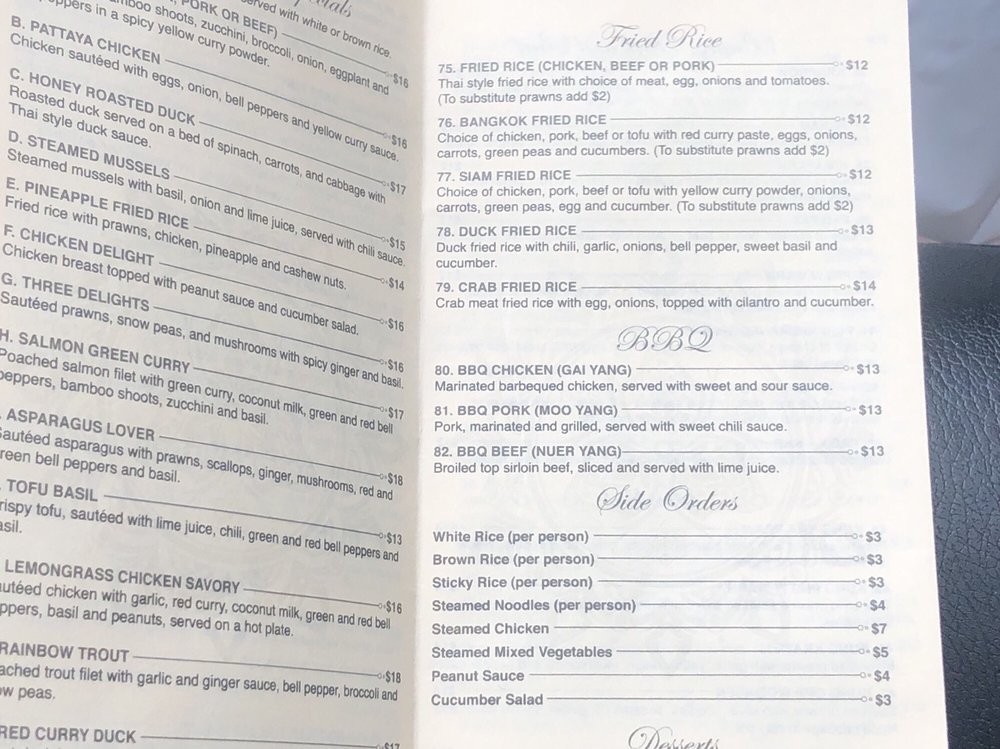 Specials
PORK OR BEEF)
served with white or brown rice.
bamboo shoots, zucchini, broccoli, onion, eggplant and
peppers in a spicy yellow curry powder. $16
B. PATTAYA CHICKEN $16
Chicken sautéed with eggs, onion, bell peppers and yellow curry sauce.
C. HONEY ROASTED DUCK $17
Roasted duck served on a bed of spinach, carrots, and cabbage with
Thai style duck sauce.
D. STEAMED MUSSELS $15
Steamed mussels with basil, onion and lime juice, served with chili sauce.
E. PINEAPPLE FRIED RICE $14
Fried rice with prawns, chicken, pineapple and cashew nuts.
F. CHICKEN DELIGHT $16
Chicken breast topped with peanut sauce and cucumber salad.
G. THREE DELIGHTS $16
Sautéed prawns, snow peas, and mushrooms with spicy ginger and basil.
H. SALMON GREEN CURRY $17
Poached salmon filet with green curry, coconut milk, green and red bell
peppers, bamboo shoots, zucchini and basil.
ASPARAGUS LOVER $18
Sautéed asparagus with prawns, scallops, ginger, mushrooms, red and
green bell peppers and basil.
TOFU BASIL $13
rispy tofu, sautéed with lime juice, chili, green and red bell peppers and
asil.
LEMONGRASS CHICKEN SAVORY $16
autéed chicken with garlic, red curry, coconut milk, green and red bell
ppers, basil and peanuts, served on a hot plate.
RAINBOW TROUT $18
ached trout filet with garlic and ginger sauce, bell pepper, broccoli and
ow peas.
RED CURRY DUCK $17
Fried Rice
75. FRIED RICE (CHICKEN, BEEF OR PORK) $12
Thai style fried rice with choice of meat, egg, onions and tomatoes.
(To substitute prawns add $2)
76. BANGKOK FRIED RICE $12
Choice of chicken, pork, beef or tofu with red curry paste, eggs, onions,
carrots, green peas and cucumbers. (To substitute prawns add $2)
77. SIAM FRIED RICE $12
Choice of chicken, pork, beef or tofu with yellow curry powder, onions,
carrots, green peas, egg and cucumber. (To substitute prawns add $2)
78. DUCK FRIED RICE $13
Duck fried rice with chili, garlic, onions, bell pepper, sweet basil and
cucumber.
79. CRAB FRIED RICE $14
Crab meat fried rice with egg, onions, topped with cilantro and cucumber.
BBQ
80. BBQ CHICKEN (GAI YANG) $13
Marinated barbequed chicken, served with sweet and sour sauce.
81. BBQ PORK (MOO YANG) $13
Pork, marinated and grilled, served with sweet chili sauce.
82. BBQ BEEF (NUER YANG) $13
Broiled top sirloin beef, sliced and served with lime juice.
Side Orders
White Rice (per person) $3
Brown Rice (per person) $3
Sticky Rice (per person) $3
Steamed Noodles (per person) $4
Steamed Chicken $7
Steamed Mixed Vegetables $5
Peanut Sauce $4
Cucumber Salad $3
Desserts